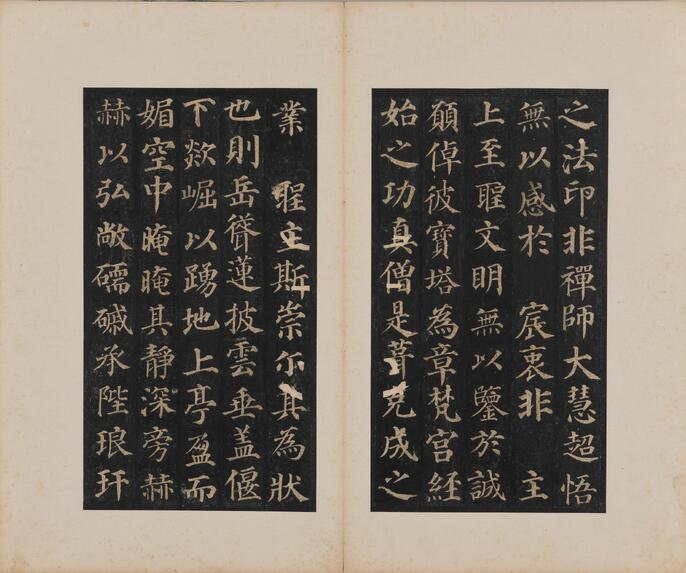 之法印非禪師大慧超悟
無以感於 宸衷非 主
上至聖文明無以鑒於誠
願倬彼寶塔為章梵宮經
始之功真僧是葺克成之
業 聖主斯崇尒其為狀
也則岳聳蓮披雲垂蓋偃
下欻崛以踴地上亭盈而
媚空中晻晻其靜深旁赫
赫以弘敞礝磩承陛琅玕